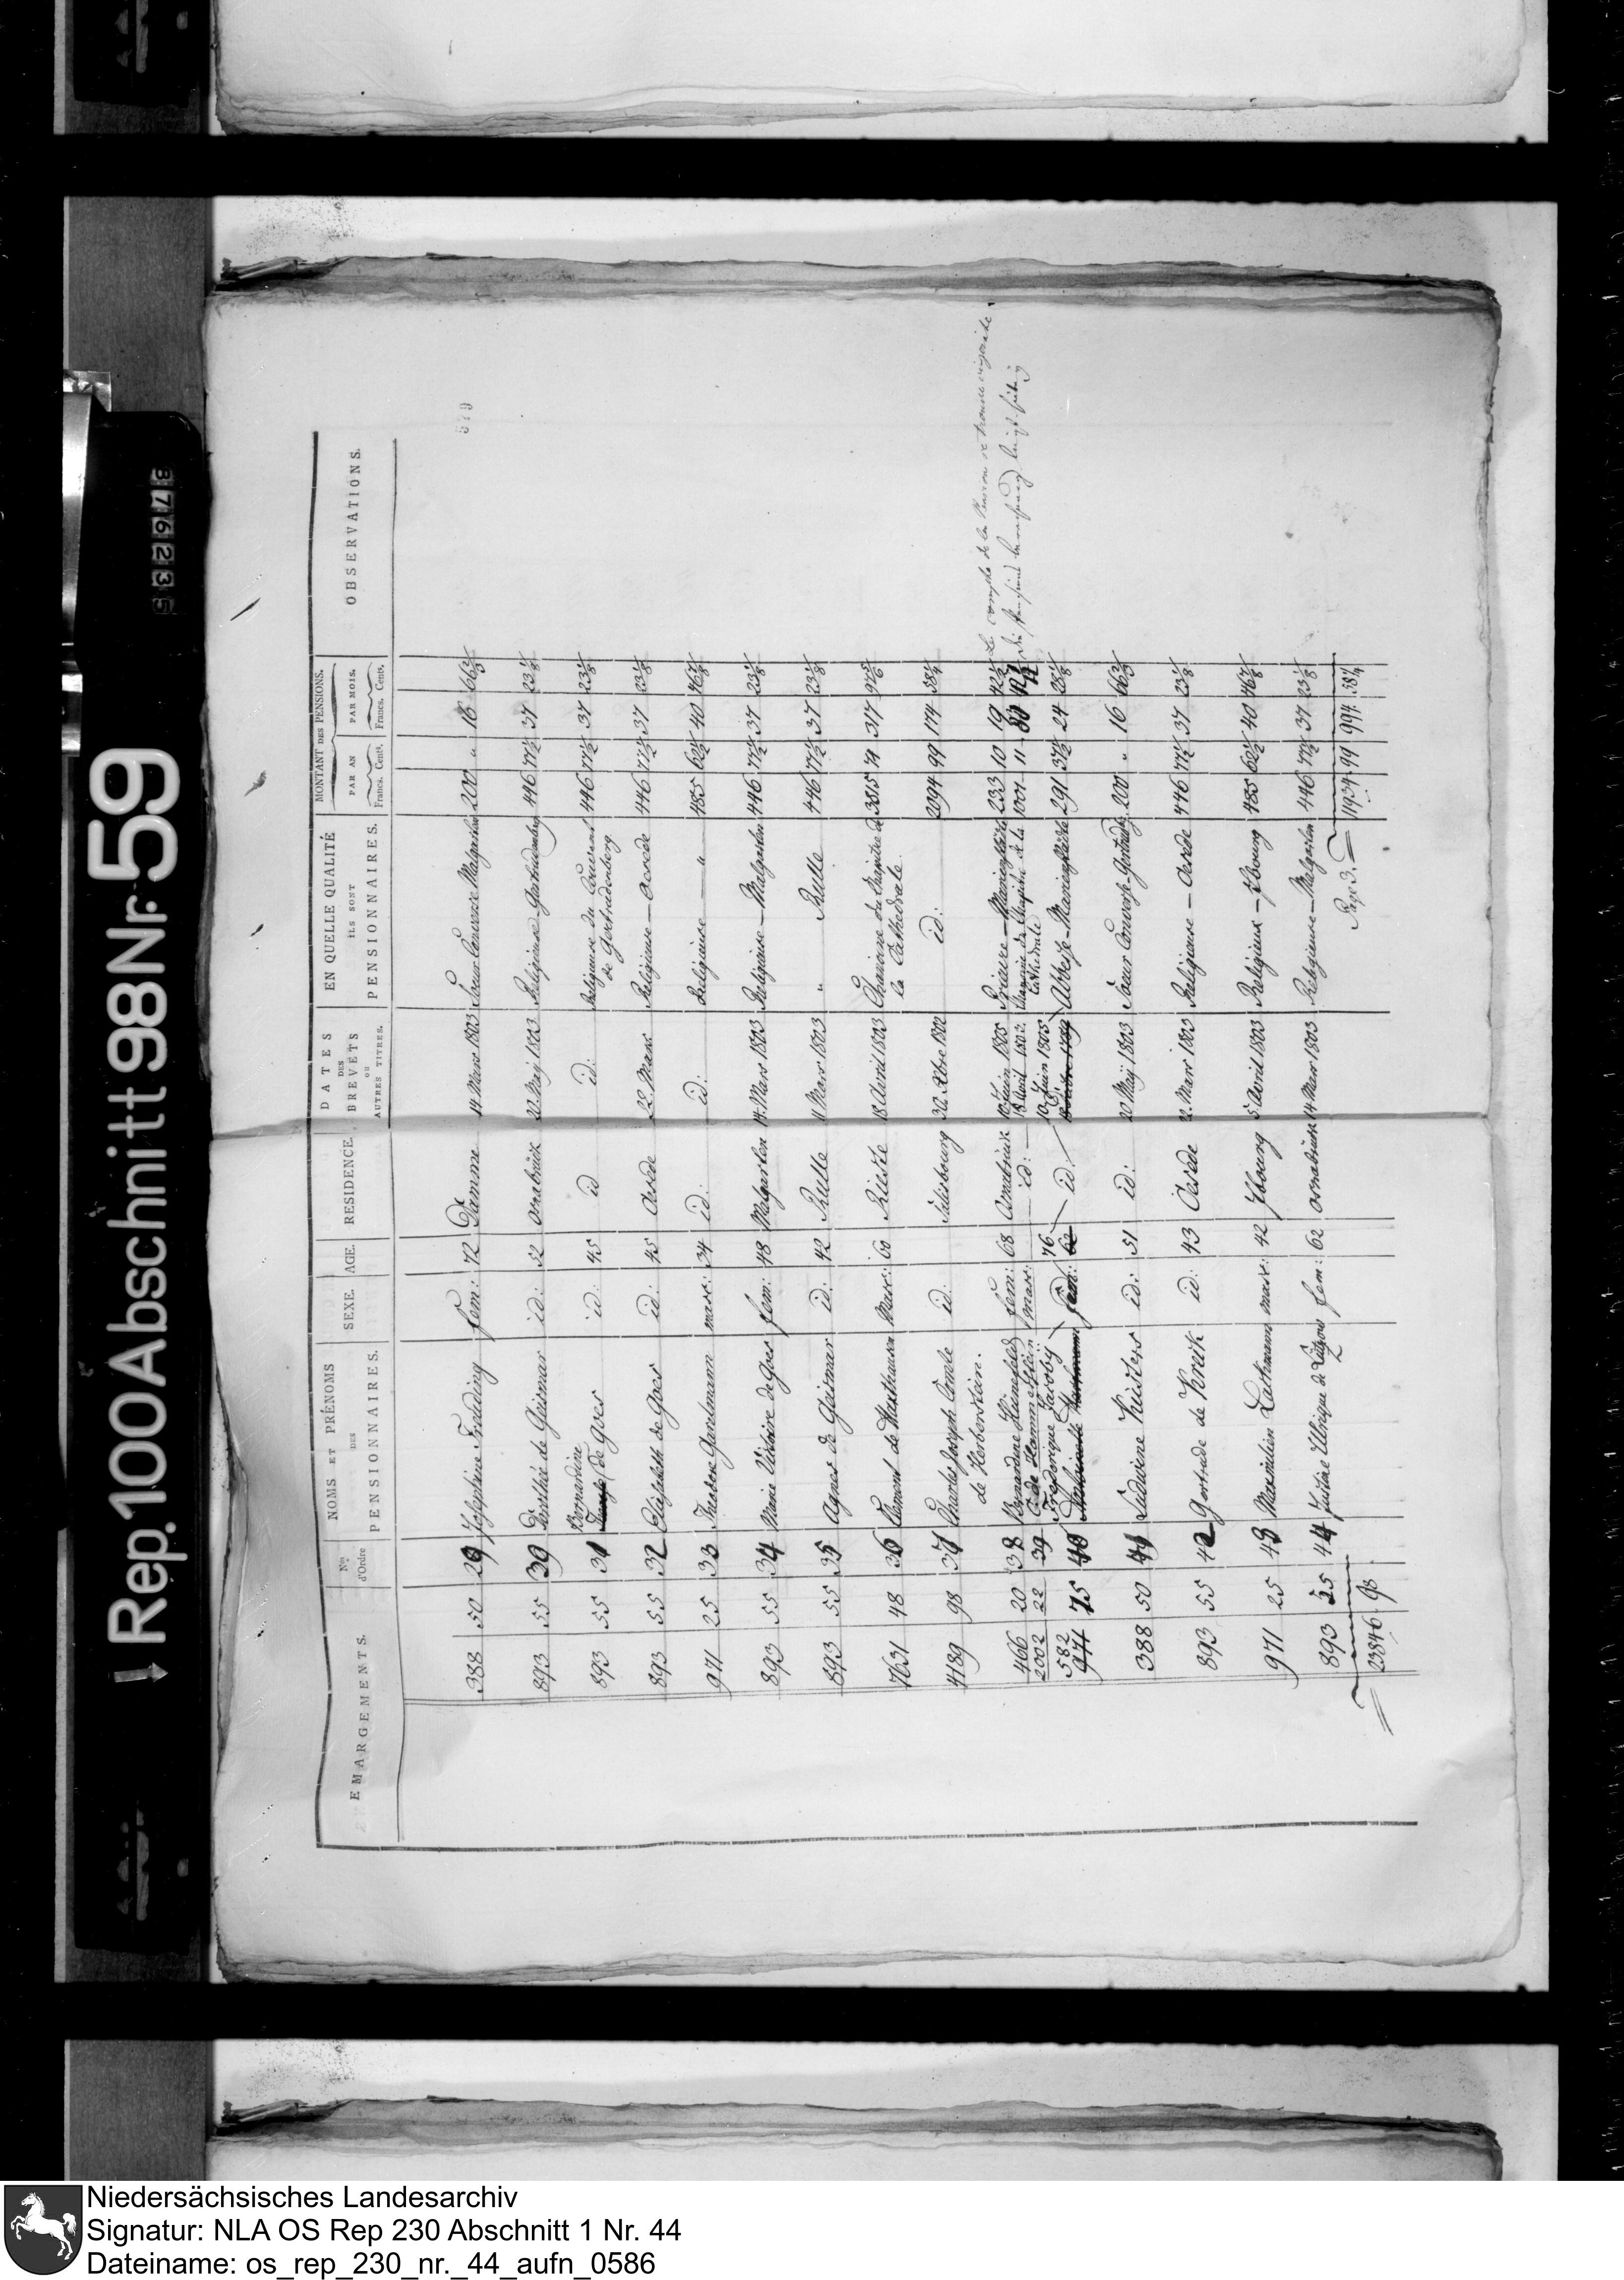 Rep. 100 Abschnitt 98 Nr. 59
3 7 6 2 3 5
579
EMARGEMENTS. | Nos d'Ordre | NOMS ET PRÉNOMS DES PENSIONNAIRES. | SEXE. | AGE. | RESIDENCE. | DATES DES BREVETS OU AUTRES TITRES. | EN QUELLE QUALITÉ ILS SONT PENSIONNAIRES. | MONTANT DES PENSIONS. PAR AN Francs. Cents. | PAR MOIS. Francs. Cents. | OBSERVATIONS.
388 50 29 Josephine fem: 72 Damme 14 Mars 1803 Soeur Converse Malgarten 200 " 16 66 2/3
893 55 30 Dorothé de Geismar id: 52 osnabrück 20 Maÿ 1803 Religieuse Gertrudenberg 446 77 1/2 37 23 1/8
893 55 31 Bernardine de Goes id: 45 id id: Religieuse du Couvent de Gertrudenberg 446 77 1/2 37 23 1/8
893 55 32 Elisabeth de Goes id: 45 Oesede 22 Mars Religieuse — Oesede 446 77 1/2 37 23 1/8
971 25 33 masc: 34 id: id: Religieuse — " 485 62 1/2 40 46 7/8
893 55 34 Marie Victoire de Goes fem: 48 Malgarten 14 Mars 1803 Religieuse — Malgarten 446 77 1/2 37 23 1/8
893 55 35 Agnes de Geismar id: 42 Rulle 11 Mars 1803 " Rulle 446 77 1/2 37 23 1/8
7631 48 36 Clement de masc: 60 Rieste 18 Avril 1803 Chanoine du Chapitre de la Cathedrale 3815 74 317 97 5/6
4189 98 37 Charles Joseph Comte de Herberstein. id: Salzbourg 30 Xbre 1802 id: 2094 99 174 58 1/4
466 20 38 Bernardine Hünefeld fem: 68 Osnabrück 10 Juin 1805 Prieure — Marienstätte 233 10 19 42 1/2 Le compte de la Pension se trouve
2002 22 39 C. de masc: 76 id: 18 Avril 1803 Chanoine du Chapitre de la Cathedrale 1001 11
582 971 75 40 Frederique Jacobÿ fem: 62 id: 10 Juin 1805 Abbesse — Marienstätte 291 37 1/2 24 28 1/8
388 50 41 Ludwine Küsters id: 51 id: 20 Maÿ 1803 Soeur Converse Gertrudbg. 200 " 16 66 2/3
893 55 42 Gertrude de Kruik id: 43 Oesede 22 Mars 1803 Religieuse — Oesede 446 77 1/2 37 23 1/8
971 25 43 Maximilien Lathmann masc: 42 Iburg 5 Avril 1803 Religieux — Iburg 485 62 1/2 40 46 7/8
893 55 44 Ulrique de Lützow fem: 62 osnabrück 14 Mars 1803 Religieuse — Malgarten 446 77 1/2 37 23 1/8
23846 98 Page 3. 11934 99 994 58 1/4
Niedersächsisches Landesarchiv
Signatur: NLA OS Rep 230 Abschnitt 1 Nr. 44
Dateiname: os_rep_230_nr._44_aufn_0586